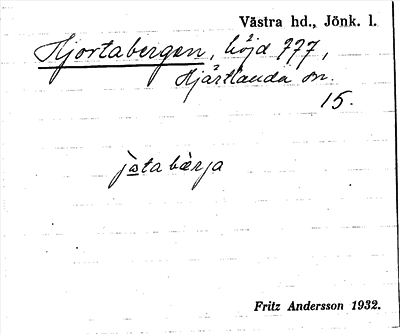 Västra hd., Jönk. l.
Hjortabergen, höjd 777,
Hjärtlanda sn.
15.
jɷta bærja
Fritz Andersson 1932.